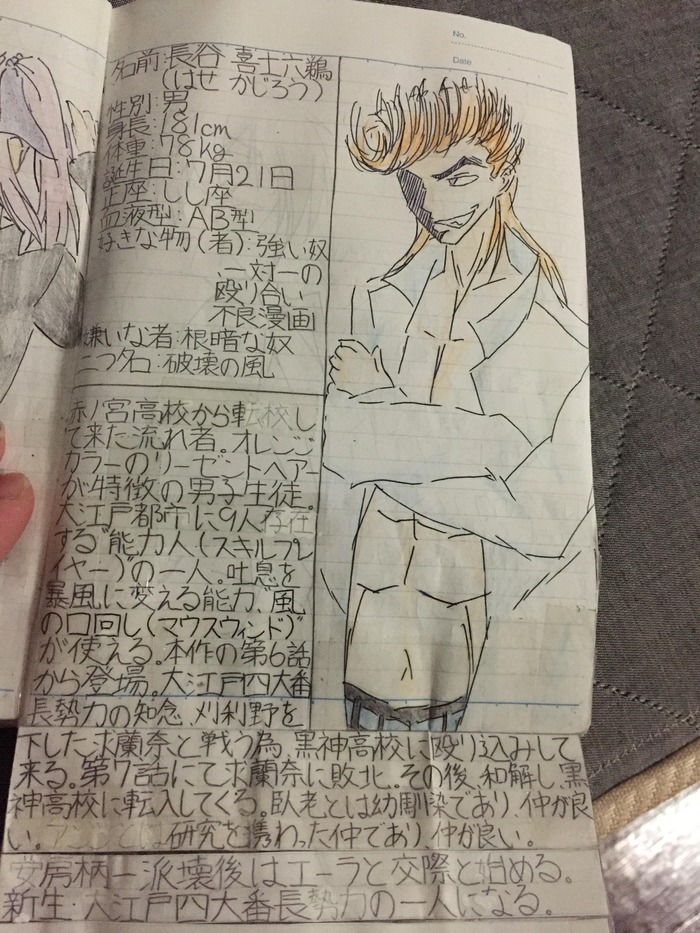 No.
Date
名前:長谷 喜士六鵜
(はせ かじろう)
性別:男
身長:181cm
体重:78kg
誕生日:7月21日
正座:しし座
血液型:AB型
好きな物(者):強い奴
、一対一の
殴り合い
不良漫画
嫌いな者:根暗な奴
二つ名:破壊の風
赤ノ宮高校から転校し
て来た流れ者。オレンジ
カラーのリーゼントヘアー
が特徴の男子生徒。
大江戸都市に9人存在
する"能力人(スキルプレ
イヤー)"の一人。吐息を
暴風に変える能力、"風
の口回し(マウスウィンド)"
が使える。本作の第6話
から登場。大江戸四大番
長勢力の知念、刈利野を
下した求蘭奈と戦う為、黒神高校に殴り込みして
来る。第7話にて求蘭奈に敗北。その後、和解し、黒
神高校に転入してくる。臥老とは幼馴染であり、仲が良
い。とは研究を携わった仲であり、仲が良い。
女房柄一派壊後はエーラと交際と始める。
新生・大江戸四大番長勢力の一人になる。